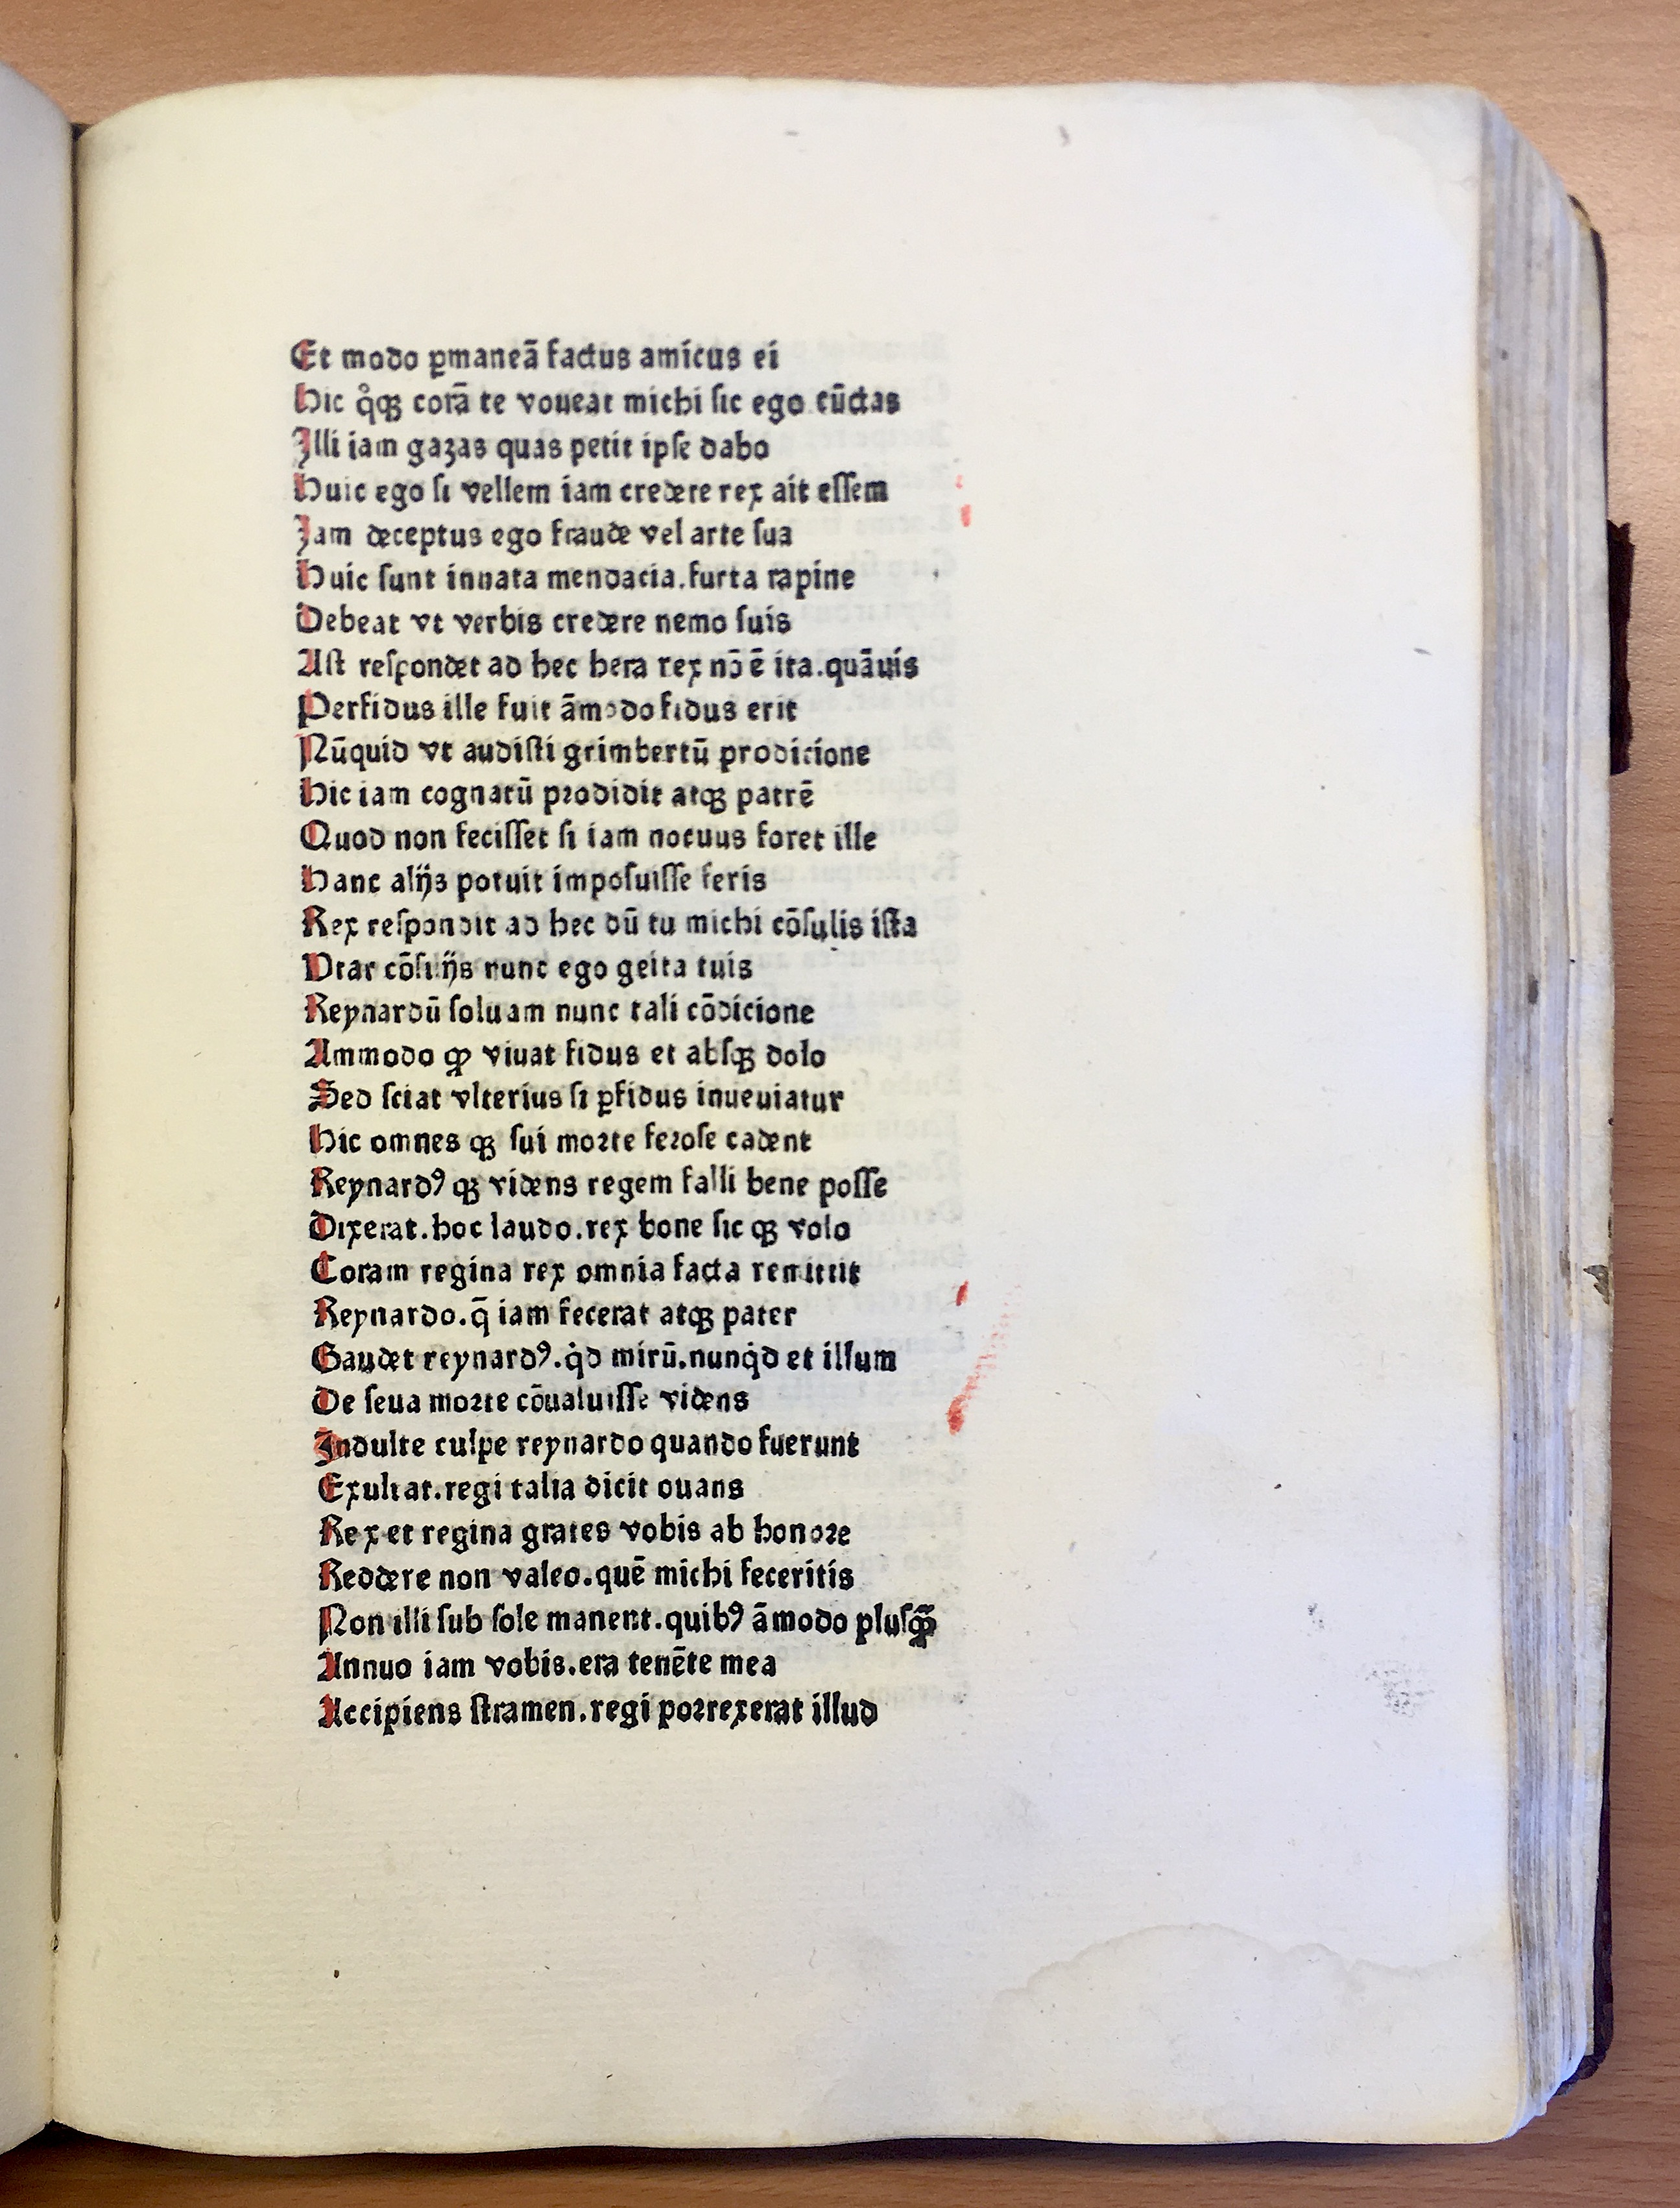 Et modo ꝑmaneā factus amicus ei
Hic q̊qꝫ corā te voueat michi sic ego cūctas
Illi iam gazas quas petit ipse dabo
Huic ego si vellem iam credere rex ait essem
Iam deceptus ego fraude vel arte sua
Huic sunt innata mendacia.furta rapine
Debeat vt verbis credere nemo suis
Ast respondet ad hec hera rex nō ē ita.quāuis
Perfidus ille fuit āmodo fidus erit
Nūquid vt audisti grimbertū prodicione
Hic iam cognatū prodidit atqꝫ patrē
Quod non fecisset si iam nocuus foret ille
Hanc alijs potuit imposuisse feris
Rex respondit ad hec dū tu michi cōsulis ista
Vtar cōsilijs nunc ego geita tuis
Reynardū soluam nunc tali cōdicione
Ammodo ꝙ viuat fidus et absqꝫ dolo
Sed sciat vlterius si ꝑfidus inueuiatur
Hic omnes qꝫ sui morte ferose cadent
Reynardꝰ qꝫ videns regem falli bene posse
Dixerat.hoc laudo.rex bone sic qꝫ volo
Coram regina rex omnia facta remittit
Reynardo.q̄ iam fecerat atqꝫ pater
Gaudet reynardꝰ.qͥd mirū.nunqͥd et illum
De seua morte cōualuisse videns
Indulte culpe reynardo quando fuerunt
Exultat.regi talia dicit ouans
Rex et regina grates vobis ab honore
Reddere non valeo.quē michi feceritis
Non illi sub sole manent.quibꝰ āmodo plusꝙ̄
Annuo iam vobis.era tenēte mea
Accipiens stramen.regi porrexerat illud